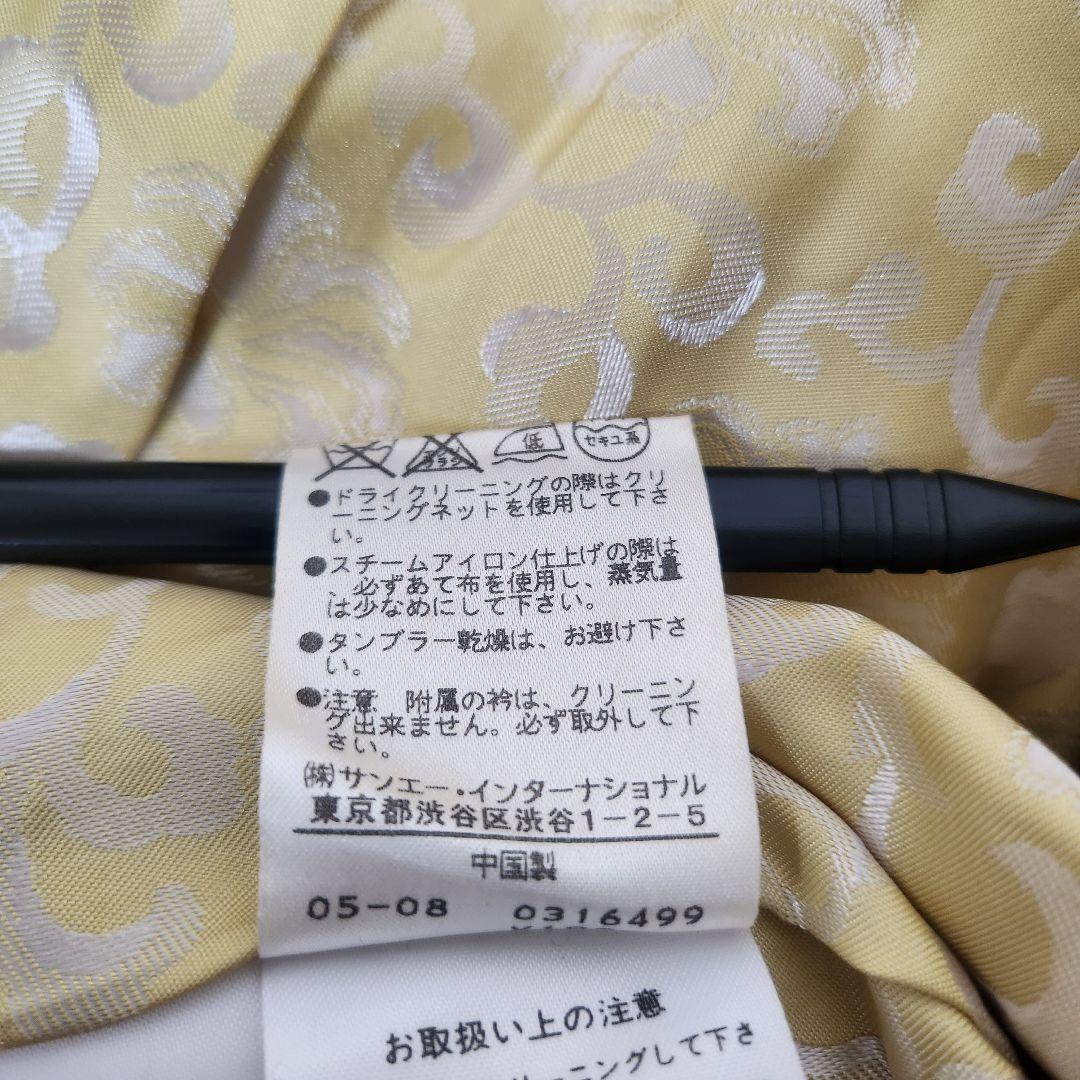 低 セキユ系
●ドライクリーニングの際はクリ
ーニングネットを使用して下さ
い。
●スチームアイロン仕上げの際は
、必ずあて布を使用し、蒸気量
は少なめにして下さい。
●タンブラー乾燥は、お避け下さ
い。
●注意 附属の衿は、クリーニン
グ出来ません。必ず取外して下
さい。
㈱サンエー・インターナショナル
東京都渋谷区渋谷1-2-5
中国製
05-08 0316499
お取扱い上の注意
リーニングして下さ